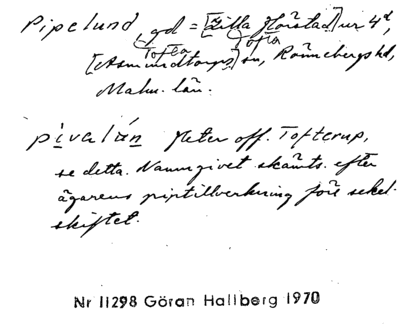 Pipelund, gd = [Lilla Harstad] nr 4d,
Tofta
Tofta
[Asmundtorps] sn, Rönnebergs hd,
Malm. län.
pivelán Heter off. Tofterup,
se detta. Namn givet skämts. efter
ägarens piptillverkning före sekel-
skiftet.
Nr 11298 Göran Hallberg 1970